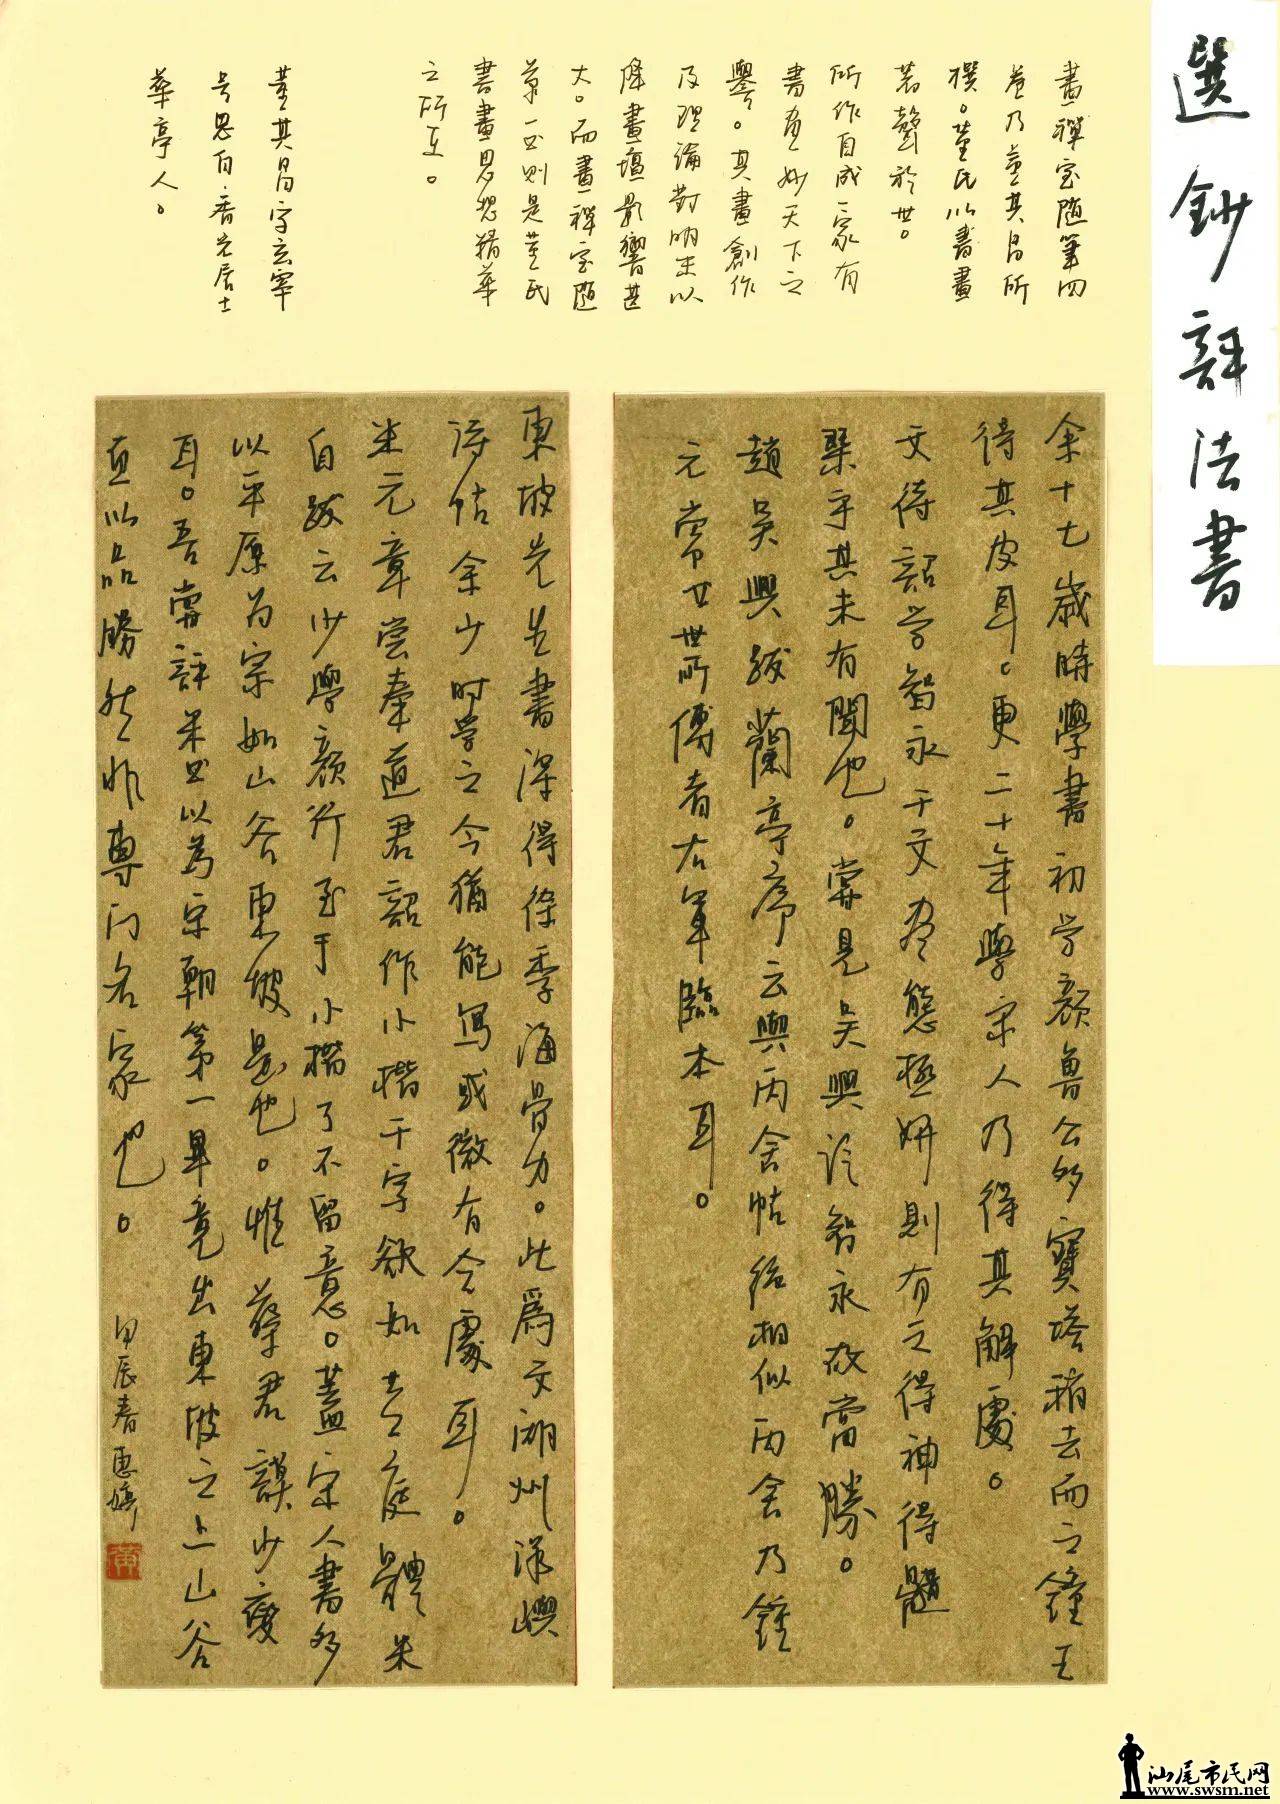 選鈔評法書
畫禪室隨筆四
卷乃董其昌所
撰。董氏以書畫
著聲於世。
所作自成一家有
書畫妙天下之
譽。其畫創作
及理論對明末以
降畫壇影響甚
大。而畫禪室隨
筆一书則是董氏
書畫思想精華
之所在。
董其昌字玄宰
号思白·香光居士
華亭人。
余十七歲時學書初学顏魯公多寶塔稍去而之鐘王
得其皮耳。更二十年學宋人乃得其解處。
文待詔学智永千文尽態極妍則有之得神得髓
槩乎其未有聞也。嘗見吴興論智永故當勝。
趙吴興跋蘭亭序云與丙舍帖絶相似丙舍乃鍾
元常世所傳者右軍臨本耳。
東坡先生書深得徐季海骨力。此爲文湖州洋嶼
詩帖余少时学之今猶能寫或微有合處耳。
米元章嘗奉道君詔作小楷千字欲如黄庭體米
自跋云少學顏行至于小楷了不留意。蓋宋人書多
以平原为宗如山谷東坡是也。惟蔡君謨少變
耳。吾嘗評米书以為宋朝第一畢竟出東坡之上山谷
直以品勝然非專门名家也。
甲辰春惠婷
黄
汕尾市民网
www.swsm.net